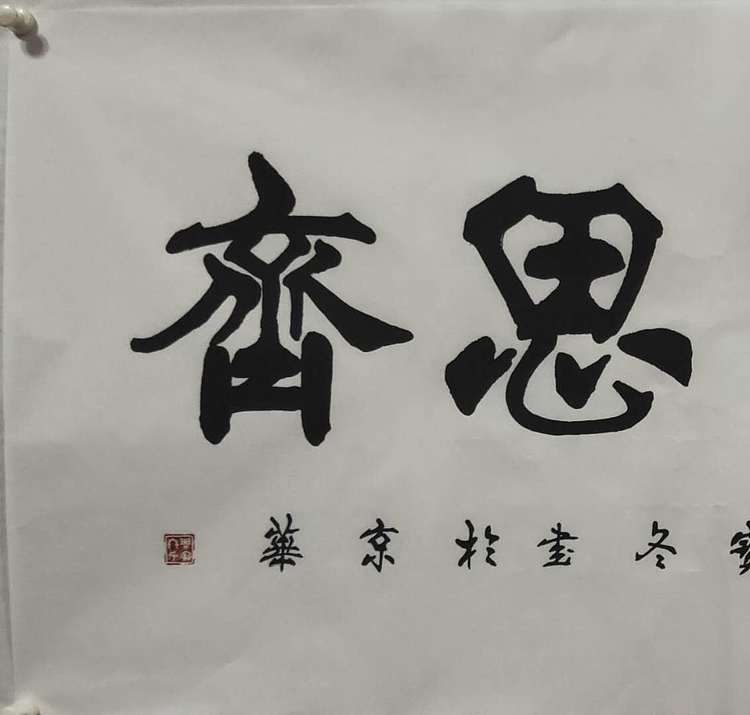 思齊
冬書於京華